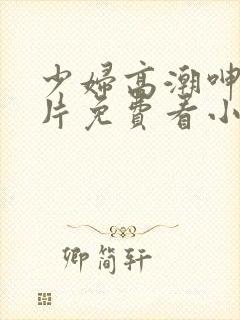 少婦高潮呻
片免費看小
卿简轩